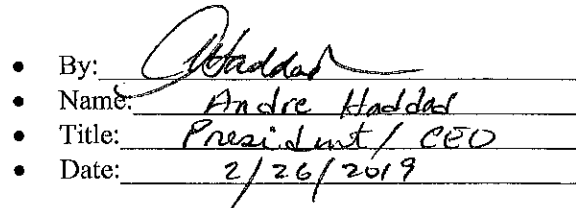 • By: AHaddad
• Name: Andre Haddad
• Title: President/ CEO
• Date: 2/26/2019